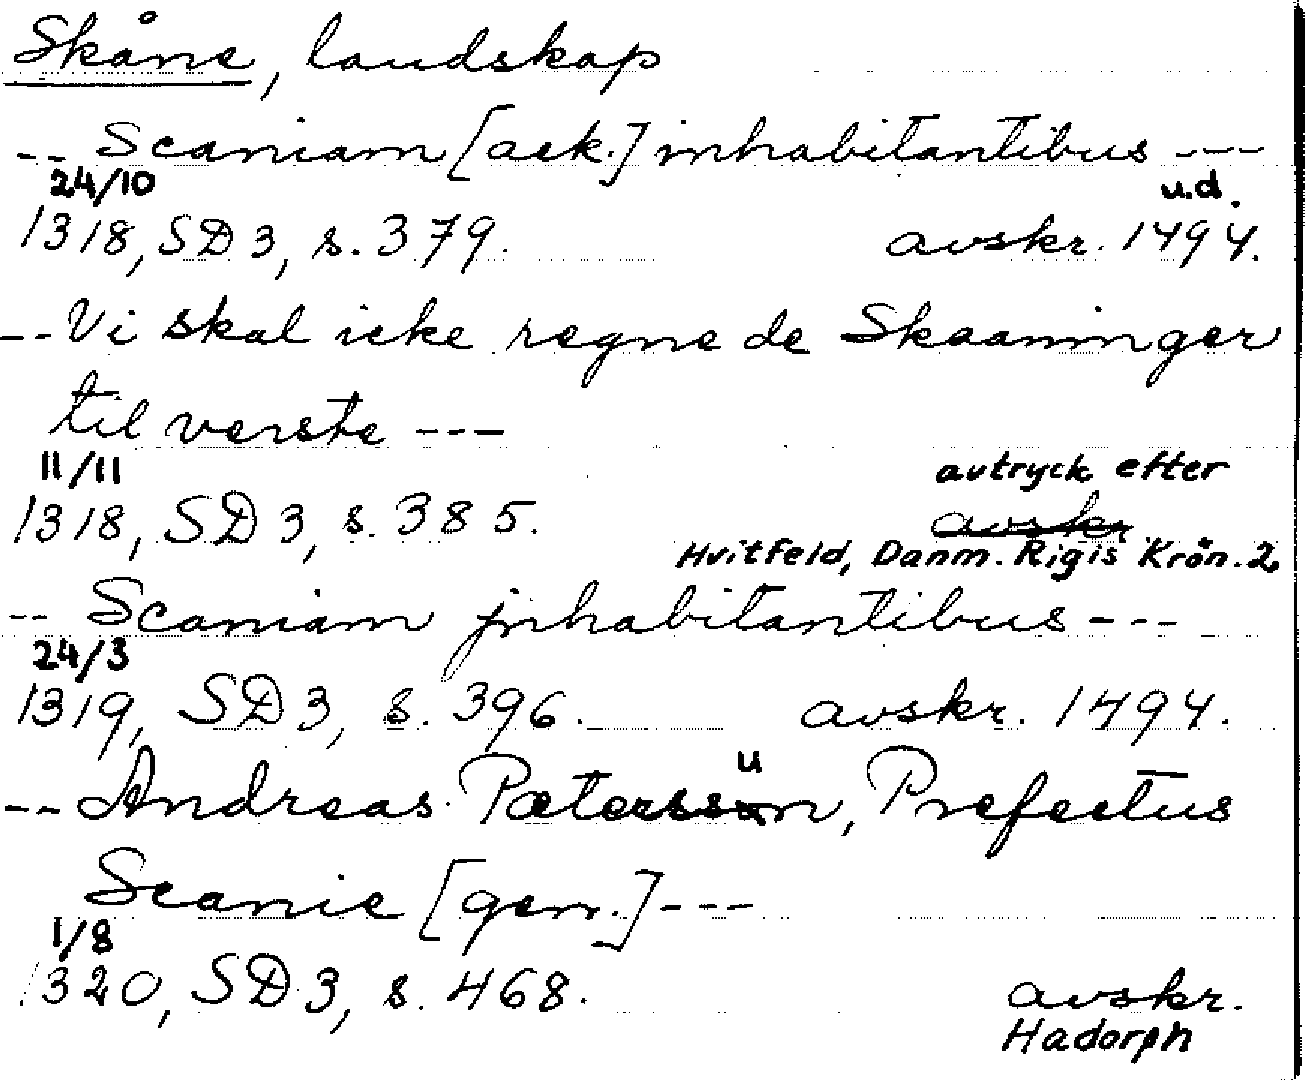 Skåne, landskap
-- Scaniam [ack.] inhabitantibus ---
24/10 u.d.
1318, SD 3, s. 379. avskr. 1494.
-- Vi skal icke regne de Skaaninger
til verste ---
11/11 avtryck efter
1318, SD 3, s. 385. avskr
Hvitfeld, Danm. Rigis Krön. 2
-- Scaniam jnhabitantibus ---
24/3
1319, SD 3, s. 396. avskr. 1494.
u
-- Andreas Pætersson, Prefectus
Scanie [gen.] ---
1/8
1320, SD 3, s. 468. avskr.
Hadorph